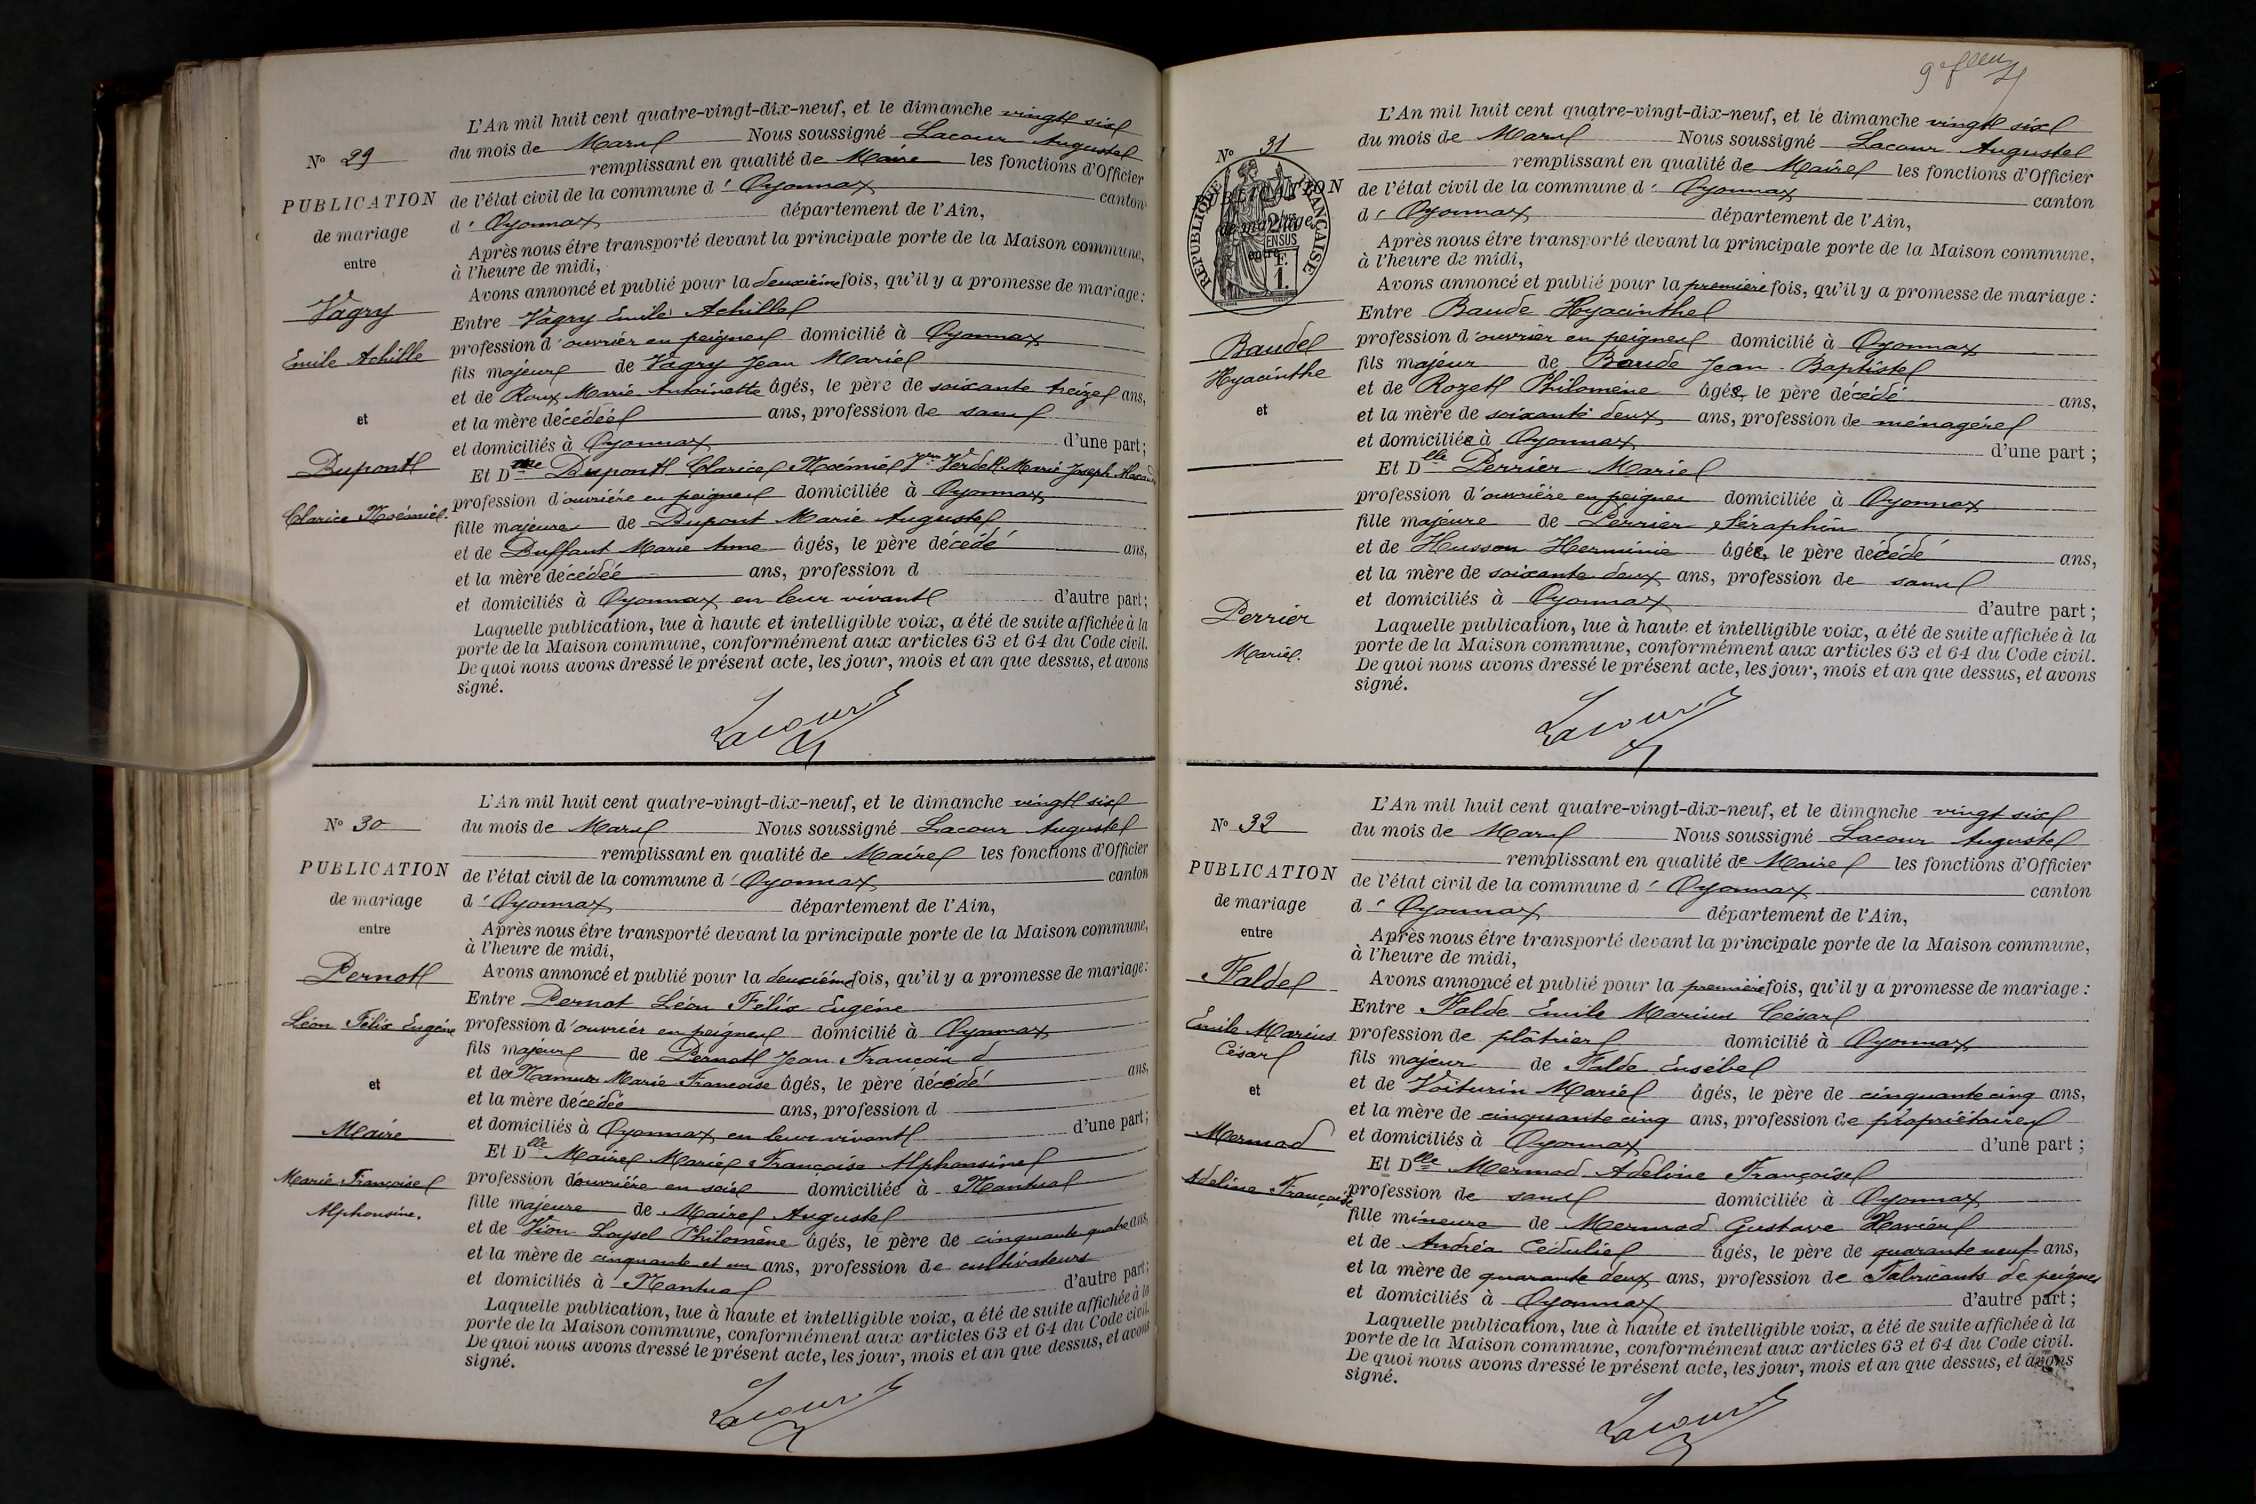 N° 29
PUBLICATION
de mariage
entre
Vagry
Emile Achille
et
Dupont
Clarice Noémie.
L'An mil huit cent quatre-vingt-dix-neuf, et le dimanche vingt six
du mois de Mars Nous soussigné Lacour Auguste
remplissant en qualité de Maire les fonctions d'Officier
de l'état civil de la commune d' Oyonnax canton
d' Oyonnax département de l'Ain,
Après nous être transporté devant la principale porte de la Maison commune,
à l'heure de midi,
Avons annoncé et publié pour la deuxième fois, qu'il y a promesse de mariage :
Entre Vagry Emile Achille
profession d'ouvrier en peignes domicilié à Oyonnax
fils majeur de Vagry Jean Marie
et de Roux Marie Antoinette âgés, le père de soixante treize ans,
et la mère décédée ans, profession de sans
et domiciliés à Oyonnax d'une part ;
Et Dme Dupont Clarice Noémie Vve Verdet Marie Joseph
profession d'ouvrière en peignes domiciliée à Oyonnax
fille majeure de Dupont Marie Auguste
et de Buffaut Marie Anne âgés, le père décédé ans,
et la mère décédée ans, profession d
et domiciliés à Oyonnax en leur vivant d'autre part ;
Laquelle publication, lue à haute et intelligible voix, a été de suite affichée à la
porte de la Maison commune, conformément aux articles 63 et 64 du Code civil.
De quoi nous avons dressé le présent acte, les jour, mois et an que dessus, et avons
signé.
Lacour
N° 30
PUBLICATION
de mariage
entre
Pernot
Léon Félix Eugène
et
Maire
Marie Françoise
Alphonsine.
L'An mil huit cent quatre-vingt-dix-neuf, et le dimanche vingt six
du mois de Mars Nous soussigné Lacour Auguste
remplissant en qualité de Maire les fonctions d'Officier
de l'état civil de la commune d' Oyonnax canton
d' Oyonnax département de l'Ain,
Après nous être transporté devant la principale porte de la Maison commune,
à l'heure de midi,
Avons annoncé et publié pour la deuxième fois, qu'il y a promesse de mariage :
Entre Pernot Léon Félix Eugène
profession d'ouvrier en peignes domicilié à Oyonnax
fils majeur de Pernot Jean François d
et de Namur Marie Françoise âgés, le père décédé ans,
et la mère décédée ans, profession d
et domiciliés à Oyonnax en leur vivant d'une part ;
Et Dlle Maire Marie Françoise Alphonsine
profession d'ouvrière en soie domiciliée à Nantua
fille majeure de Maire Auguste
et de Vion Loysel Philomène âgés, le père de cinquante quatre ans,
et la mère de cinquante et un ans, profession de cultivateurs
et domiciliés à Nantua d'autre part ;
Laquelle publication, lue à haute et intelligible voix, a été de suite affichée à la
porte de la Maison commune, conformément aux articles 63 et 64 du Code civil.
De quoi nous avons dressé le présent acte, les jour, mois et an que dessus, et avons
signé.
Lacour
9e
N° 31
PUBLICATION
de mariage
entre
RÉPUBLIQUE FRANÇAISE
Baude
Hyacinthe
et
Perrier
Marie.
L'An mil huit cent quatre-vingt-dix-neuf, et le dimanche vingt six
du mois de Mars Nous soussigné Lacour Auguste
remplissant en qualité de Maire les fonctions d'Officier
de l'état civil de la commune d' Oyonnax canton
d' Oyonnax département de l'Ain,
Après nous être transporté devant la principale porte de la Maison commune,
à l'heure de midi,
Avons annoncé et publié pour la première fois, qu'il y a promesse de mariage :
Entre Baude Hyacinthe
profession d'ouvrier en peignes domicilié à Oyonnax
fils majeur de Baude Jean-Baptiste
et de Rozet Philomène âgée, le père décédé ans,
et la mère de soixante deux ans, profession de ménagère
et domiciliée à Oyonnax d'une part ;
Et Dlle Perrier Marie
profession d'ouvrière en peignes domiciliée à Oyonnax
fille majeure de Perrier Séraphin
et de Husson Herminie âgée, le père décédé ans,
et la mère de soixante deux ans, profession de sans
et domiciliés à Oyonnax d'autre part ;
Laquelle publication, lue à haute et intelligible voix, a été de suite affichée à la
porte de la Maison commune, conformément aux articles 63 et 64 du Code civil.
De quoi nous avons dressé le présent acte, les jour, mois et an que dessus, et avons
signé.
Lacour
N° 32
PUBLICATION
de mariage
entre
Falde
Emile Marius
César
et
Mermod
Adeline Françoise
L'An mil huit cent quatre-vingt-dix-neuf, et le dimanche vingt six
du mois de Mars Nous soussigné Lacour Auguste
remplissant en qualité de Maire les fonctions d'Officier
de l'état civil de la commune d' Oyonnax canton
d' Oyonnax département de l'Ain,
Après nous être transporté devant la principale porte de la Maison commune,
à l'heure de midi,
Avons annoncé et publié pour la première fois, qu'il y a promesse de mariage :
Entre Falde Emile Marius César
profession de plâtrier domicilié à Oyonnax
fils majeur de Falde Eusèbe
et de Voiturin Marie âgés, le père de cinquante cinq ans,
et la mère de cinquante cinq ans, profession de propriétaires
et domiciliés à Oyonnax d'une part ;
Et Dlle Mermod Adeline Françoise
profession de sans domiciliée à Oyonnax
fille mineure de Mermod Gustave Xavier
et de Andréa Cédulie âgés, le père de quarante neuf ans,
et la mère de quarante deux ans, profession de Fabricants de peignes
et domiciliés à Oyonnax d'autre part ;
Laquelle publication, lue à haute et intelligible voix, a été de suite affichée à la
porte de la Maison commune, conformément aux articles 63 et 64 du Code civil.
De quoi nous avons dressé le présent acte, les jour, mois et an que dessus, et avons
signé.
Lacour